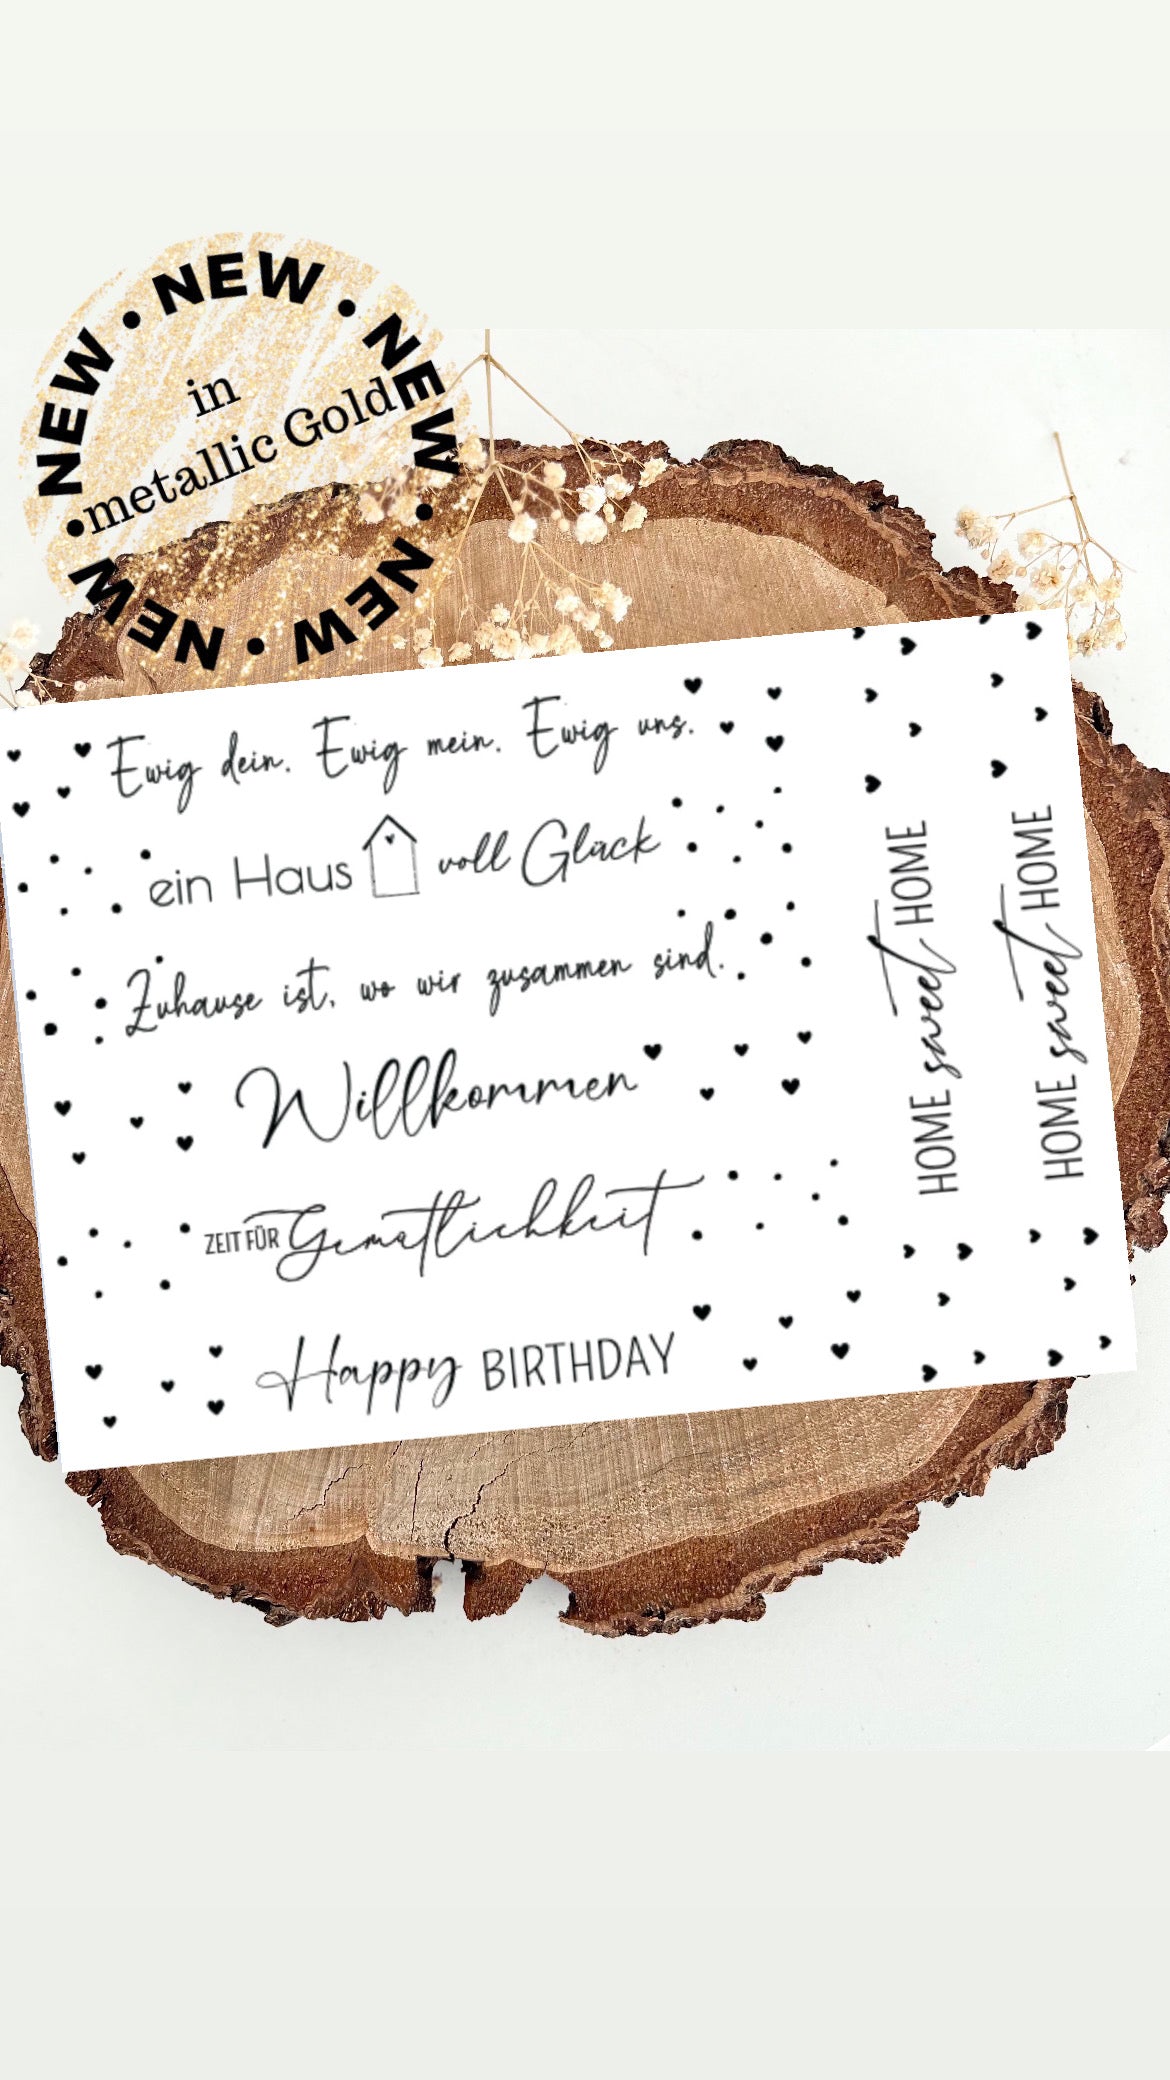 NEW • NEW • NEW • NEW • NEW • NEW • NEW •
in
metallic Gold
Ewig dein. Ewig mein. Ewig uns.
ein Haus voll Glück
Zuhause ist, wo wir zusammen sind.
Willkommen
ZEIT FÜR Gemütlichkeit
Happy BIRTHDAY
HOME sweet HOME
HOME sweet HOME